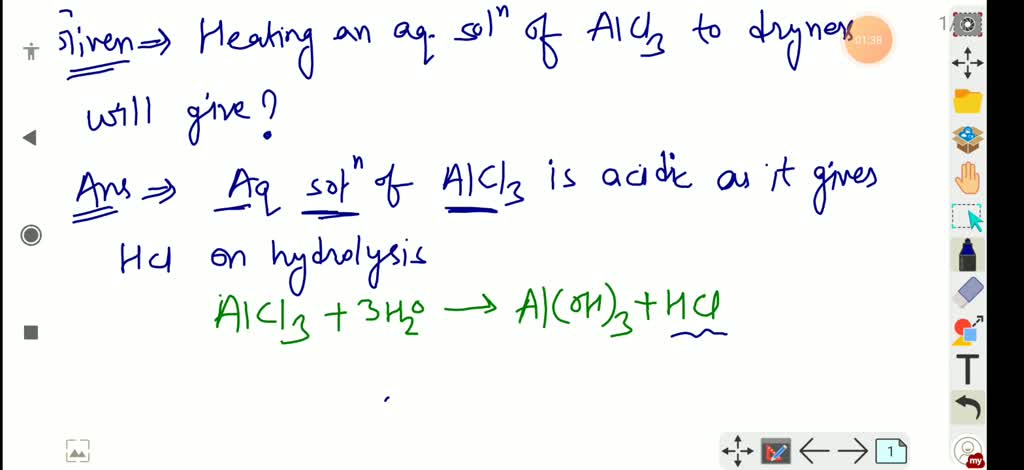 Given ⇒ Heating an aq. solⁿ of AlCl₃ to dryness
will give?
Ans ⇒ Aq solⁿ of AlCl₃ is acidic as it gives
HCl on hydrolysis
AlCl₃ + 3H₂O → Al(OH)₃ + HCl
01:38
T
1
my